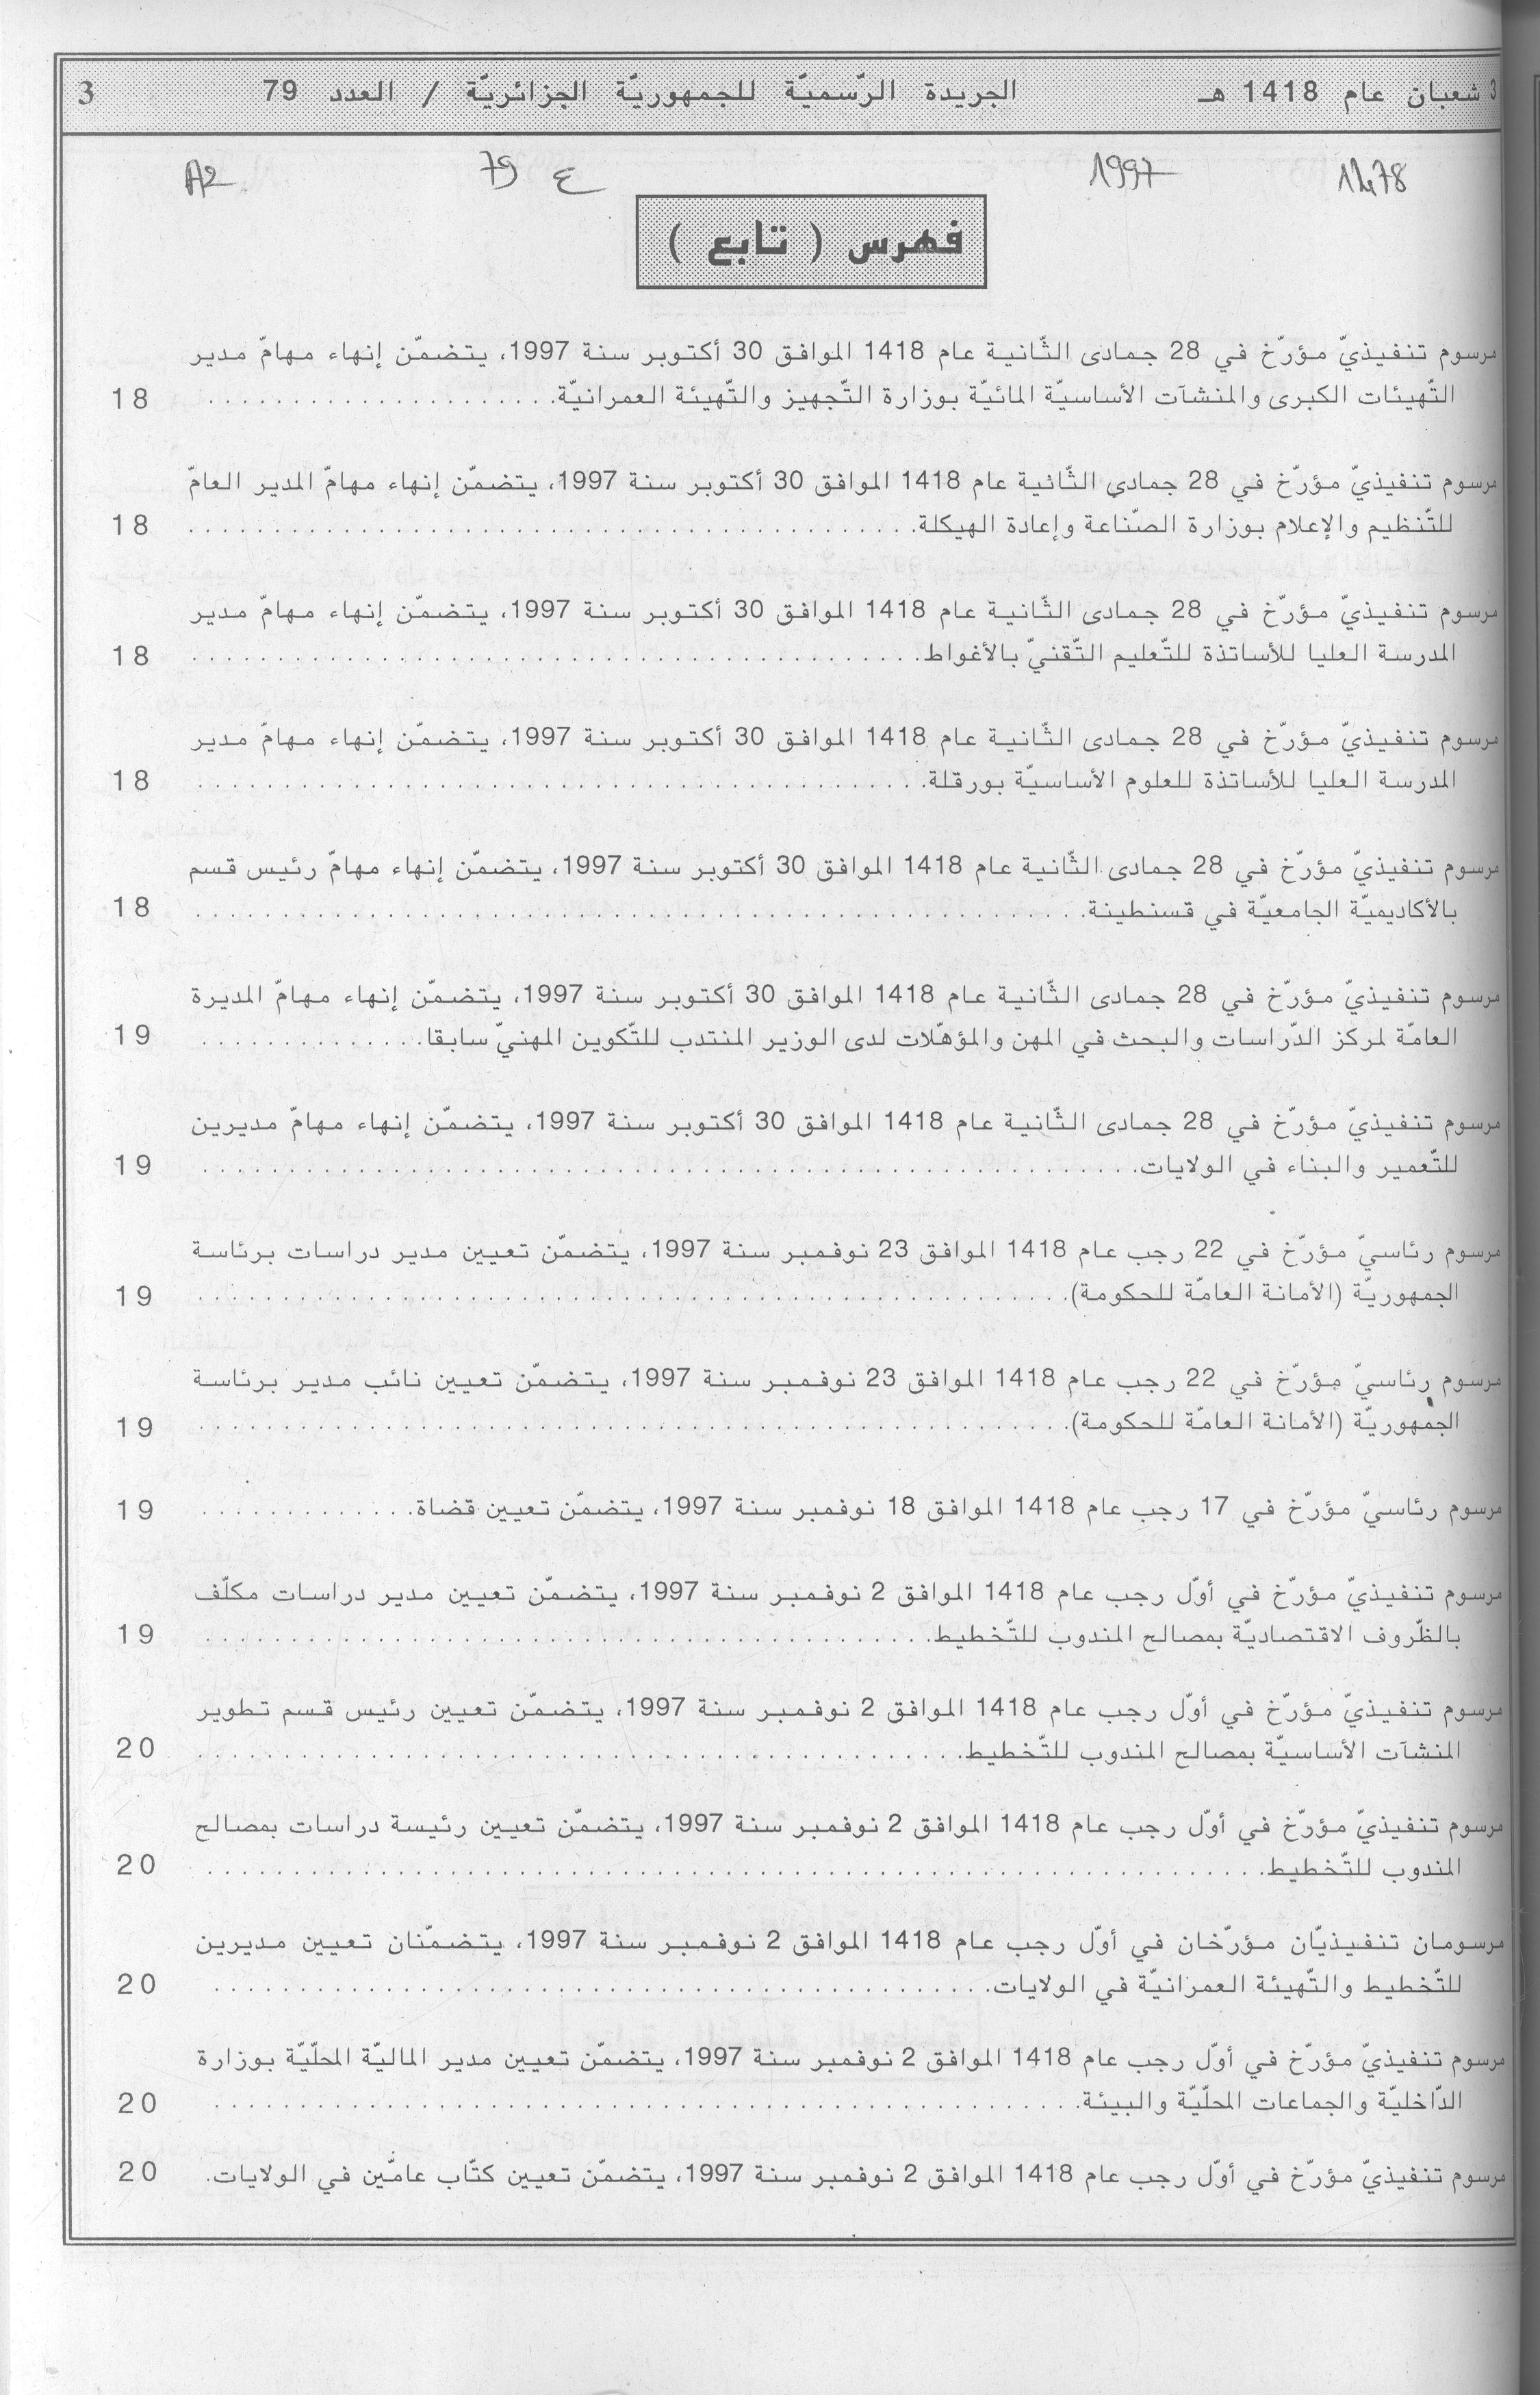 3 شعبان عام 1418 هـ
الجريدة الرّسميّة للجمهوريّة الجزائريّة / العدد 79
3
1997
ع 79
A2
فهرس ( تابع )
مرسوم تنفيذيّ مؤرّخ في 28 جمادى الثّانية عام 1418 الموافق 30 أكتوبر سنة 1997، يتضمّن إنهاء مهامّ مدير
التّهيئات الكبرى والمنشآت الأساسيّة المائيّة بوزارة التّجهيز والتّهيئة العمرانيّة. . . . . . . . . . . . . . . . . . . . . 18
مرسوم تنفيذيّ مؤرّخ في 28 جمادى الثّانية عام 1418 الموافق 30 أكتوبر سنة 1997، يتضمّن إنهاء مهامّ المدير العامّ
للتّنظيم والإعلام بوزارة الصّناعة وإعادة الهيكلة. . . . . . . . . . . . . . . . . . . . . 18
مرسوم تنفيذيّ مؤرّخ في 28 جمادى الثّانية عام 1418 الموافق 30 أكتوبر سنة 1997، يتضمّن إنهاء مهامّ مدير
المدرسة العليا للأساتذة للتّعليم التّقنيّ بالأغواط. . . . . . . . . . . . . . . . . . . . . 18
مرسوم تنفيذيّ مؤرّخ في 28 جمادى الثّانية عام 1418 الموافق 30 أكتوبر سنة 1997، يتضمّن إنهاء مهامّ مدير
المدرسة العليا للأساتذة للعلوم الأساسيّة بورقلة. . . . . . . . . . . . . . . . . . . . . 18
مرسوم تنفيذيّ مؤرّخ في 28 جمادى الثّانية عام 1418 الموافق 30 أكتوبر سنة 1997، يتضمّن إنهاء مهامّ رئيس قسم
بالأكاديميّة الجامعيّة في قسنطينة. . . . . . . . . . . . . . . . . . . . . 18
مرسوم تنفيذيّ مؤرّخ في 28 جمادى الثّانية عام 1418 الموافق 30 أكتوبر سنة 1997، يتضمّن إنهاء مهامّ المديرة
العامّة لمركز الدّراسات والبحث في المهن والمؤهّلات لدى الوزير المنتدب للتّكوين المهنيّ سابقا. . . . . . . . . . . . . . 19
مرسوم تنفيذيّ مؤرّخ في 28 جمادى الثّانية عام 1418 الموافق 30 أكتوبر سنة 1997، يتضمّن إنهاء مهامّ مديرين
للتّعمير والبناء في الولايات. . . . . . . . . . . . . . . . . . . . . 19
مرسوم رئاسيّ مؤرّخ في 22 رجب عام 1418 الموافق 23 نوفمبر سنة 1997، يتضمّن تعيين مدير دراسات برئاسة
الجمهوريّة (الأمانة العامّة للحكومة). . . . . . . . . . . . . . . . . . . . . 19
مرسوم رئاسيّ مؤرّخ في 22 رجب عام 1418 الموافق 23 نوفمبر سنة 1997، يتضمّن تعيين نائب مدير برئاسة
الجمهوريّة (الأمانة العامّة للحكومة). . . . . . . . . . . . . . . . . . . . . 19
مرسوم رئاسيّ مؤرّخ في 17 رجب عام 1418 الموافق 18 نوفمبر سنة 1997، يتضمّن تعيين قضاة. . . . . . . . . . . . . . 19
مرسوم تنفيذيّ مؤرّخ في أوّل رجب عام 1418 الموافق 2 نوفمبر سنة 1997، يتضمّن تعيين مدير دراسات مكلّف
بالظّروف الاقتصاديّة بمصالح المندوب للتّخطيط. . . . . . . . . . . . . . . . . . . . . 19
مرسوم تنفيذيّ مؤرّخ في أوّل رجب عام 1418 الموافق 2 نوفمبر سنة 1997، يتضمّن تعيين رئيس قسم تطوير
المنشآت الأساسيّة بمصالح المندوب للتّخطيط. . . . . . . . . . . . . . . . . . . . . 20
مرسوم تنفيذيّ مؤرّخ في أوّل رجب عام 1418 الموافق 2 نوفمبر سنة 1997، يتضمّن تعيين رئيسة دراسات بمصالح
المندوب للتّخطيط. . . . . . . . . . . . . . . . . . . . . 20
مرسومان تنفيذيّان مؤرّخان في أوّل رجب عام 1418 الموافق 2 نوفمبر سنة 1997، يتضمّنان تعيين مديرين
للتّخطيط والتّهيئة العمرانيّة في الولايات. . . . . . . . . . . . . . . . . . . . . 20
مرسوم تنفيذيّ مؤرّخ في أوّل رجب عام 1418 الموافق 2 نوفمبر سنة 1997، يتضمّن تعيين مدير الماليّة المحلّيّة بوزارة
الدّاخليّة والجماعات المحلّيّة والبيئة. . . . . . . . . . . . . . . . . . . . . 20
مرسوم تنفيذيّ مؤرّخ في أوّل رجب عام 1418 الموافق 2 نوفمبر سنة 1997، يتضمّن تعيين كتّاب عامّين في الولايات. 20